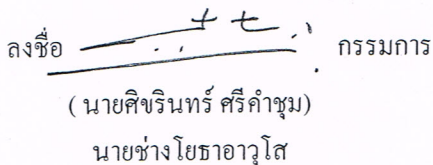 ลงชื่อ กรรมการ
( นายศิขรินทร์ ศรีคำชุม)
นายช่างโยธาอาวุโส